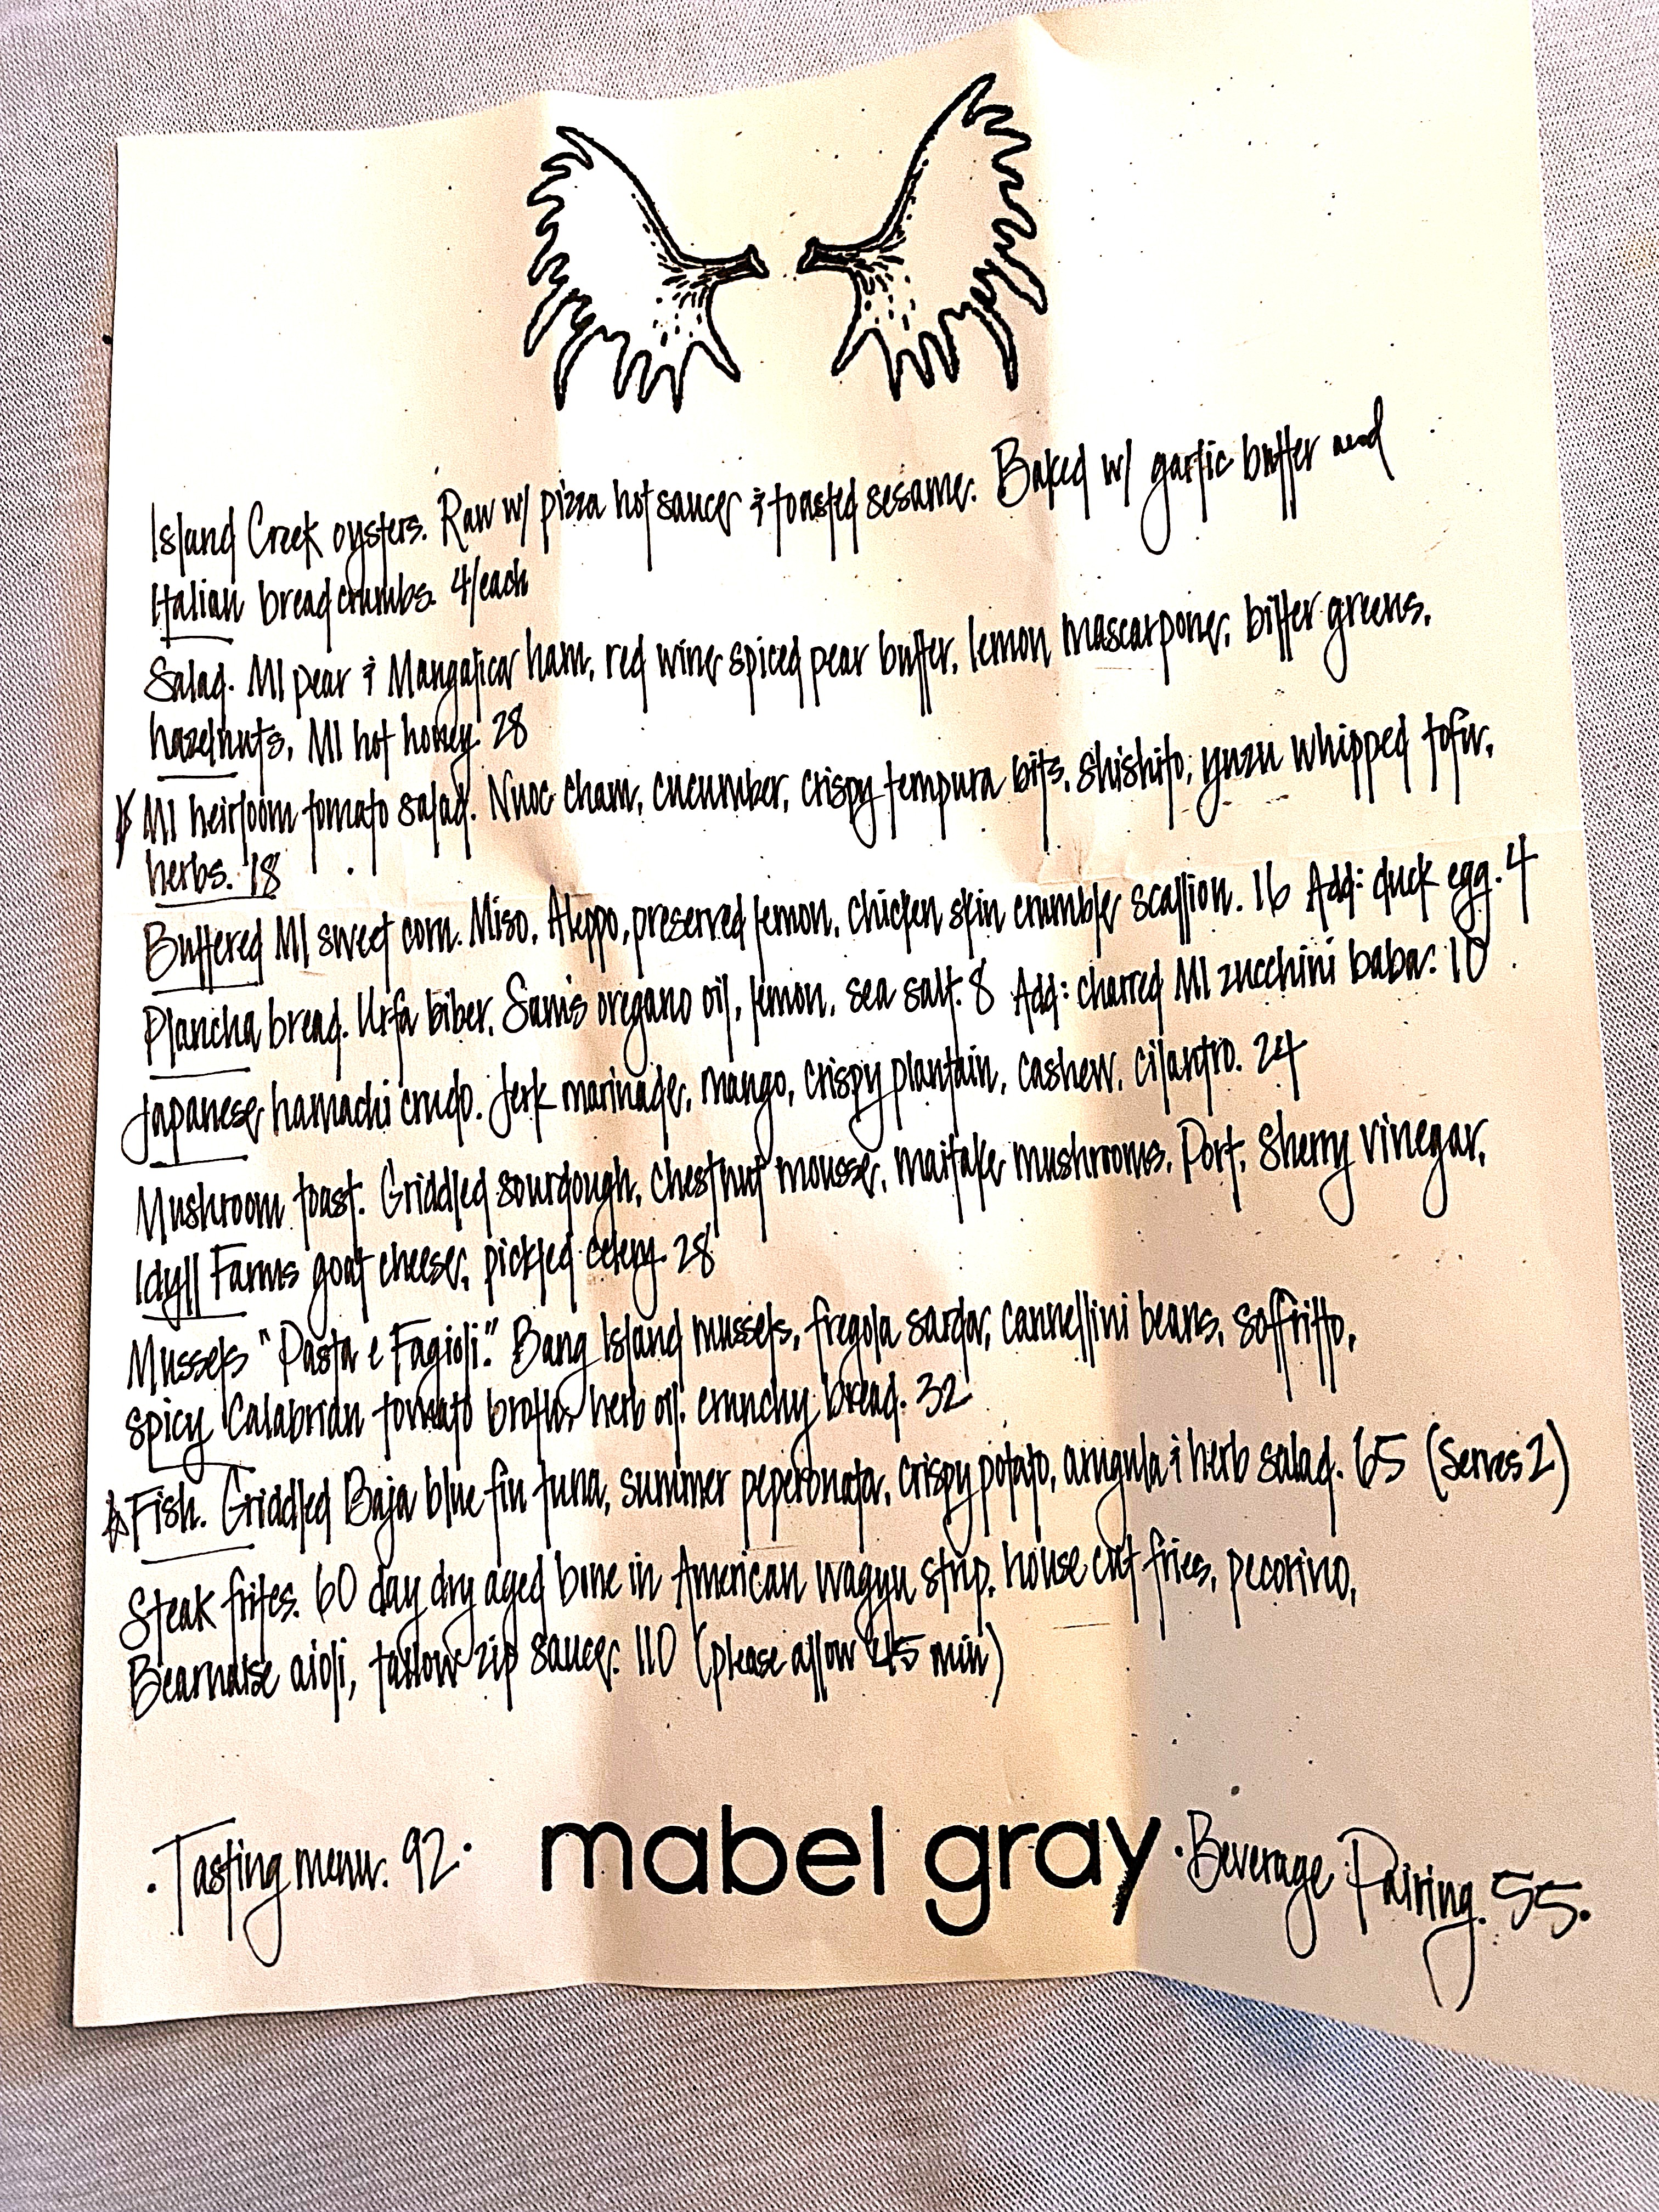 Island Creek oysters. Raw w/ pizza hot sauce & toasted sesame. Baked w/ garlic butter and
Italian breadcrumbs. 4/each
Salad. MI pear & Mangalica ham, red wine spiced pear butter, lemon mascarpone, bitter greens,
hazelnuts, MI hot honey. 28
MI heirloom tomato salad. Nuoc cham, cucumber, crispy tempura bits, shishito, yuzu whipped tofu,
herbs. 18
Buttered MI sweet corn. Miso, Aleppo, preserved lemon, chicken skin crumble, scallion. 16 Add: duck egg. 4
Plancha bread. Urfa biber, Sam's oregano oil, lemon, sea salt. 8 Add: charred MI zucchini baba. 10
Japanese hamachi crudo. Jerk marinade, mango, crispy plantain, cashew, cilantro. 24
Mushroom toast. Griddled sourdough, chestnut mousse, maitake mushrooms, Port, Sherry vinegar,
Idyll Farms goat cheese, pickled celery. 28
Mussels "Pasta e Fagioli." Bang Island mussels, fregola sarda, cannellini beans, soffritto,
spicy Calabrian tomato broth, herb oil, crunchy bread. 32
Fish. Griddled Baja blue fin tuna, summer peperonata, crispy potato, arugula & herb salad. 65 (Serves 2)
Steak frites. 60 day dry aged bone in American wagyu strip, house cut fries, pecorino,
Bearnaise aioli, tallow zip sauce. 110 (please allow 45 min)
·Tasting menu. 92· mabel gray ·Beverage Pairing. 55.